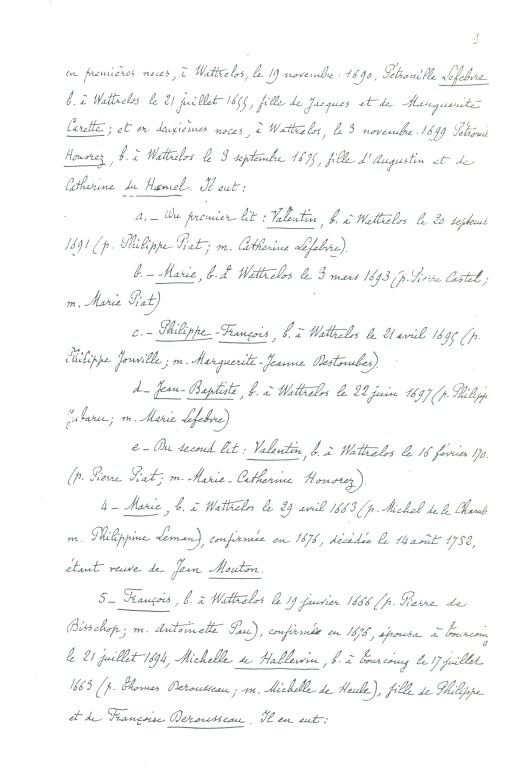 en premières noces, à Wattrelos, le 19 novembre 1690, Pétronille Lefebvre
b. à Wattrelos le 21 juillet 1655, fille de Jacques et de Marguerite
Carette ; et en deuxièmes noces, à Wattrelos, le 3 novembre 1699
Honorez, b. à Wattrelos le 3 septembre 1675, fille d'Augustin et de
Catherine du Hamel. Il eut :
a. — Du premier lit : Valentin, b. à Wattrelos le 20
1691 (p. Philippe Piat ; m. Catherine Lefebvre).
b. — Marie, b. à Wattrelos le 3 mars 1693 (p. Pierre Castel ;
m. Marie Piat)
c. — Philippe-François, b. à Wattrelos le 21 avril 1695 (p.
Philippe Jonville ; m. Marguerite-Jeanne Destombes)
d — Jean-Baptiste, b. à Wattrelos le 22 juin 1697 (p.
m. Marie Lefebvre)
e — Du second lit : Valentin, b. à Wattrelos le 16 février
(p. Pierre Piat ; m. Marie-Catherine Honorez).
4 — Marie, b. à Wattrelos le 29 avril 1663 (p. Michel de le
m. Philippine Leman), confirmée en 1676, décédée le 14 août 1752,
étant veuve de Jean Mouton.
5 — François, b. à Wattrelos le 19 janvier 1666 (p. Pierre de
Bisschop ; m. Antoinette Pau), confirmé en 1676, épousa à Tourcoing
le 21 juillet 1694, Michelle de Hallewin, b. à Tourcoing le 17 juillet
1663 (p. Thomas Derousseau ; m. Michelle de Heule), fille de Philippe
et de Françoise Derousseau. Il en eut :